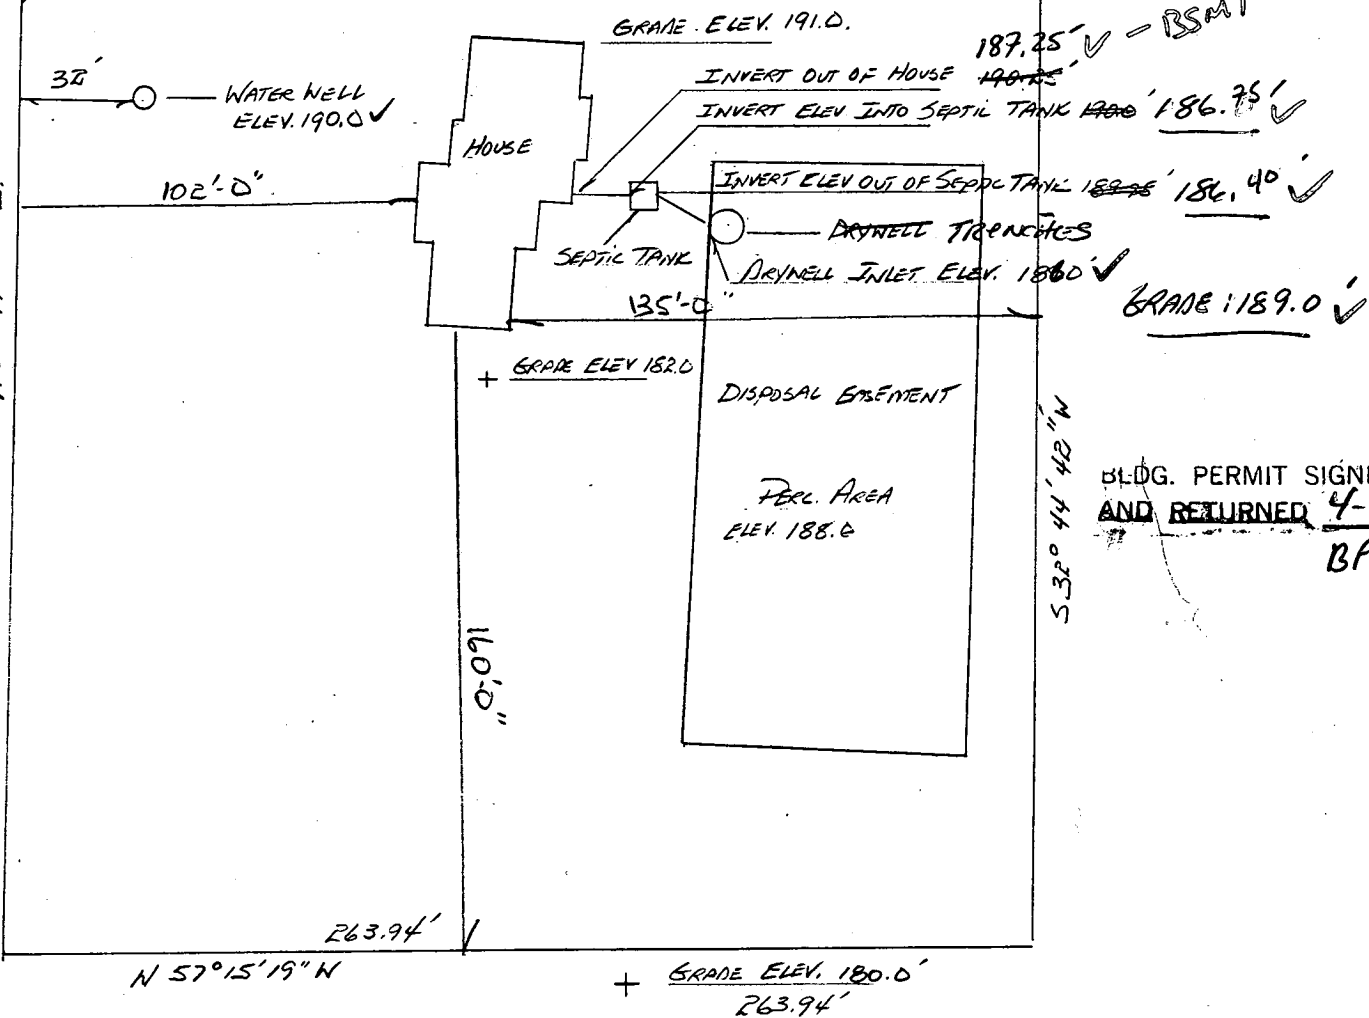 GRADE ELEV. 191.0.
187.25' - BSMT
32'
WATER WELL
ELEV. 190.0
INVERT OUT OF HOUSE 190.25'
INVERT ELEV INTO SEPTIC TANK 190.0' 186.75'
HOUSE
102'-0"
INVERT ELEV OUT OF SEPTIC TANK 186.40'
DRYWELL TRENCHES
SEPTIC TANK
DRYWELL INLET ELEV. 186.0'
135'-0"
GRADE: 189.0'
GRADE ELEV 182.0
DISPOSAL EASEMENT
S 32° 44' 42" W
BLDG. PERMIT SIGN
AND RETURNED 4-
PERC. AREA
ELEV. 188.0
160'-0"
263.94'
N 57°15'19" W
GRADE ELEV. 180.0'
263.94'